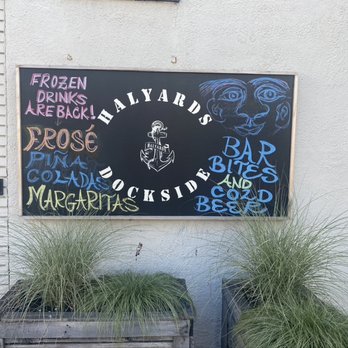 FROZEN
DRINKS
ARE BACK!
FROSÉ
PIÑA
COLADAS
MARGARITAS
HALYARDS
HALYARDS
DOCKSIDE
BAR
BITES
AND
COLD
BEER